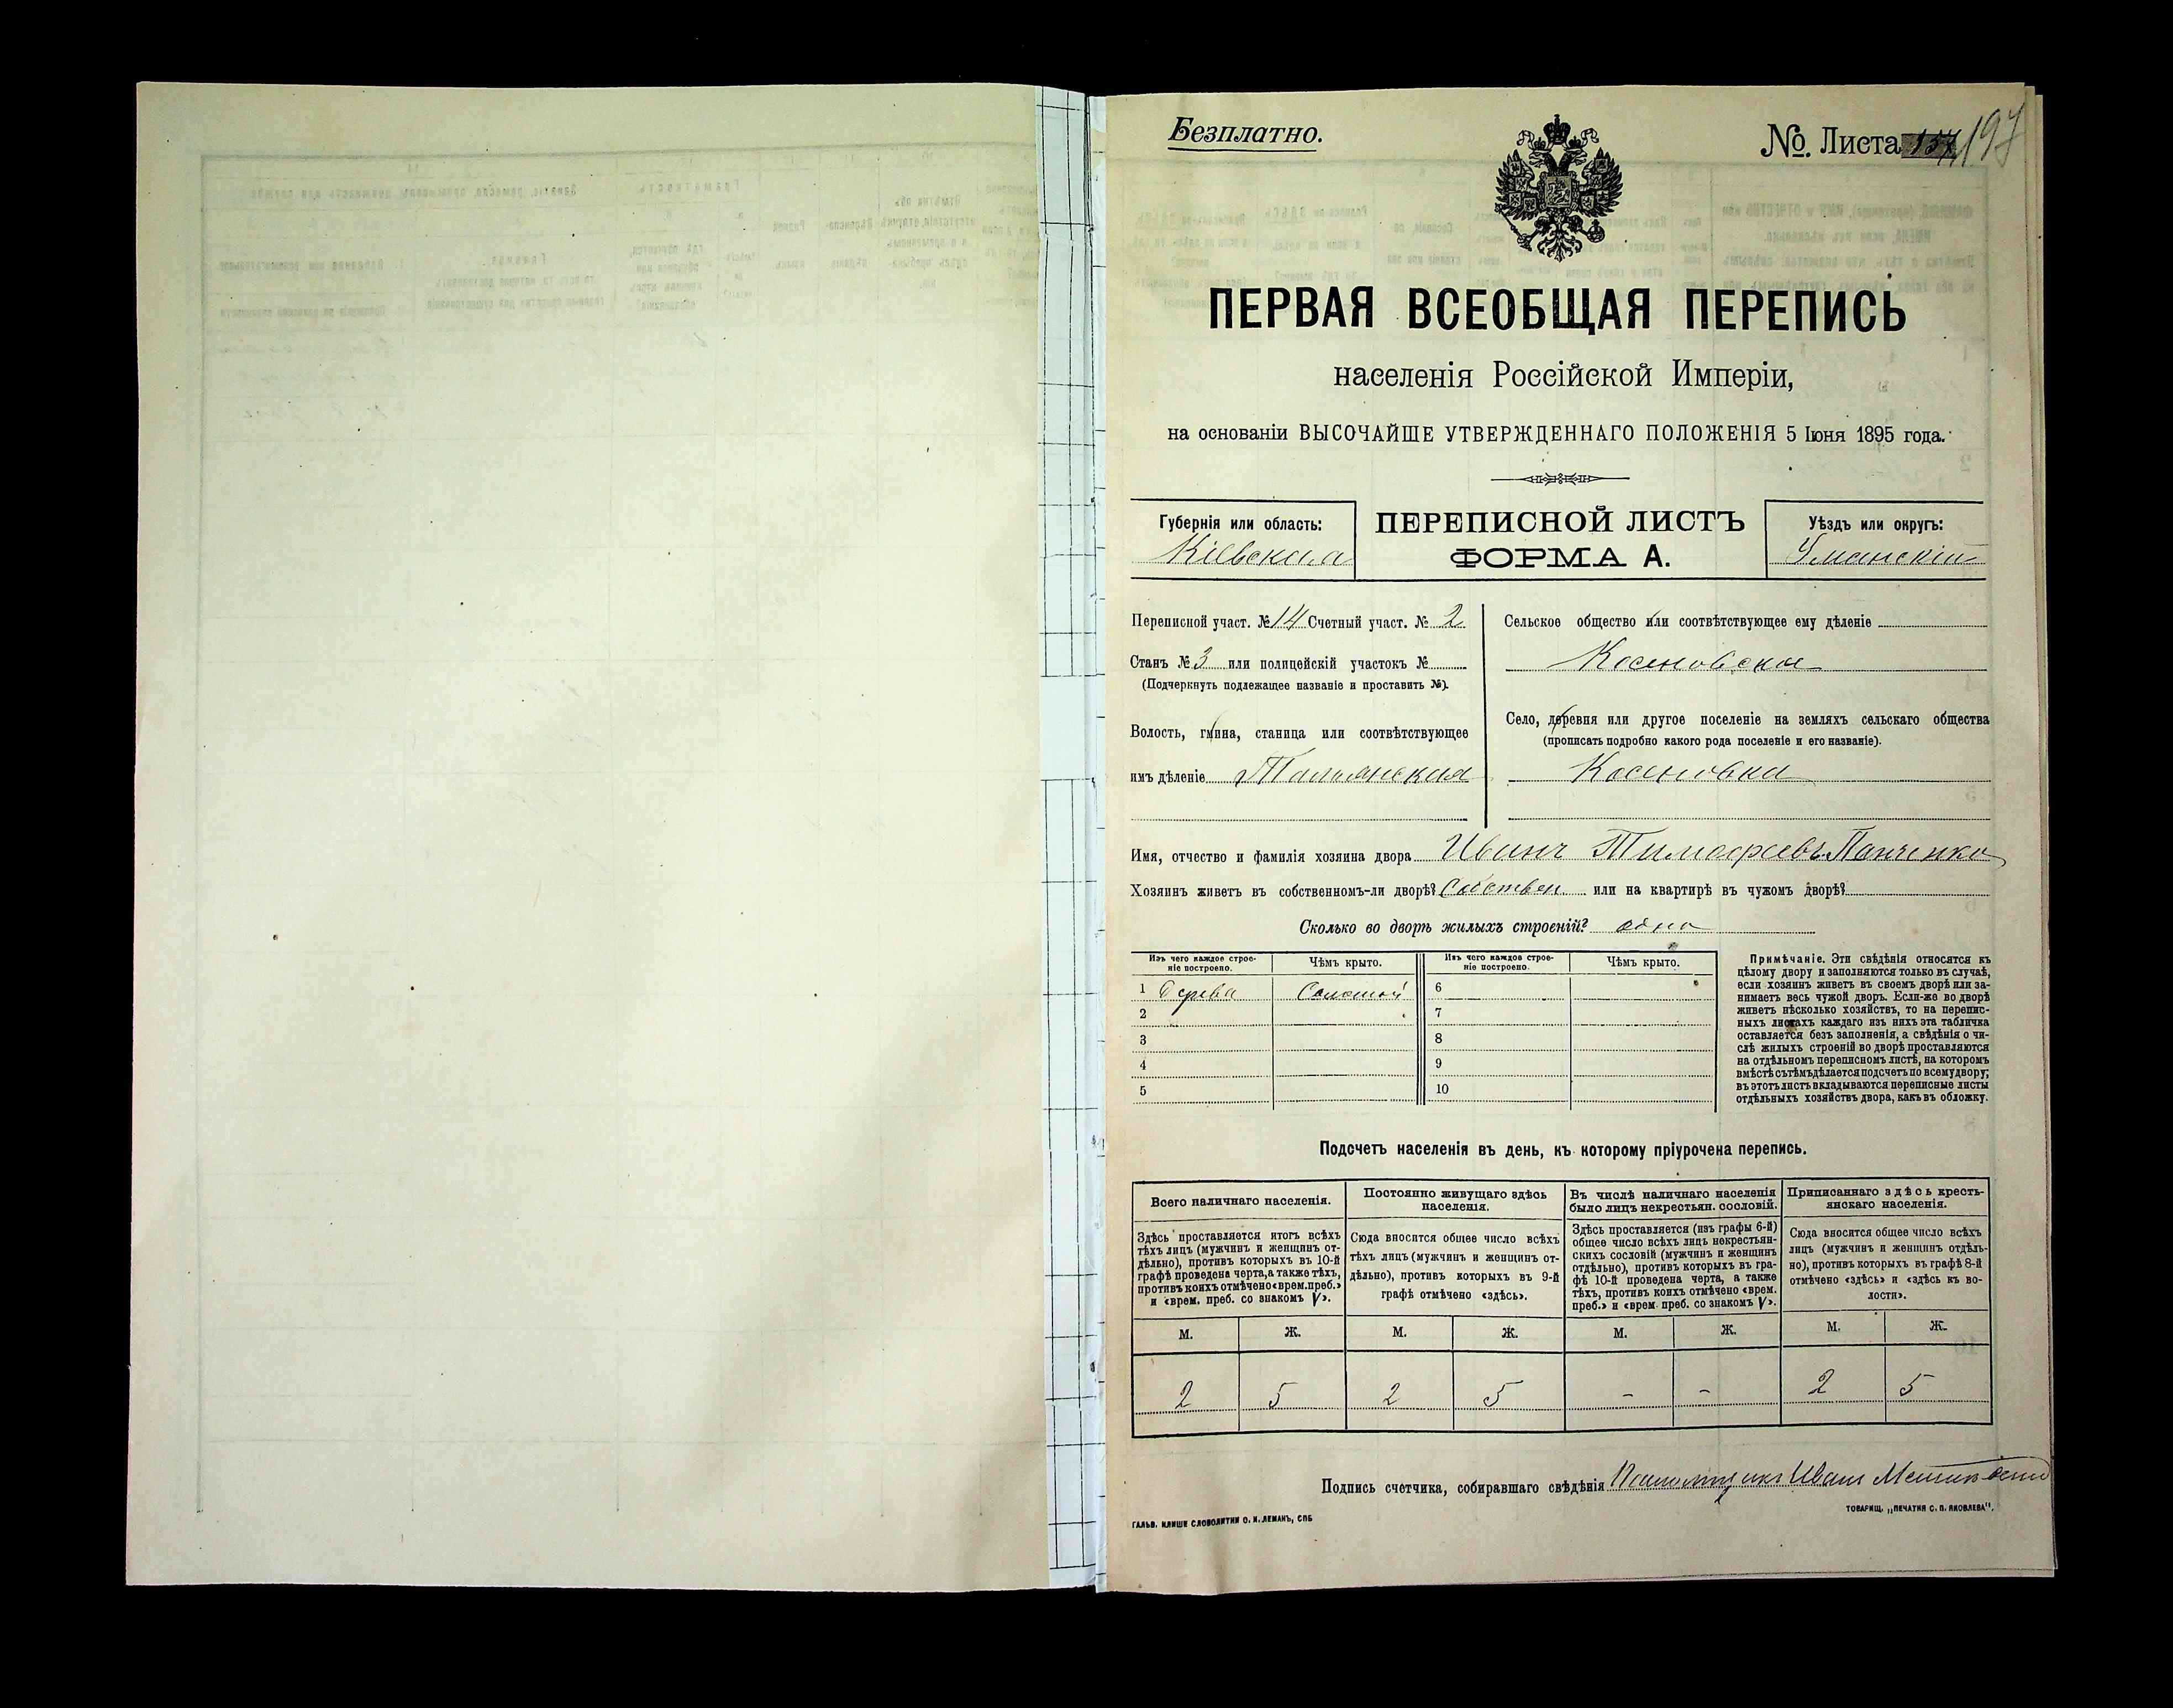 Безплатно.
№. Листа 157 197
ПЕРВАЯ ВСЕОБЩАЯ ПЕРЕПИСЬ
населенія Россійской Имперіи,
на основаніи ВЫСОЧАЙШЕ УТВЕРЖДЕННАГО ПОЛОЖЕНІЯ 5 Іюня 1895 года.
Губернія или область:
Кіевская
ПЕРЕПИСНОЙ ЛИСТЪ
ФОРМА А.
Уѣздъ или округъ:
Уманскій
Переписной участ. № 14 Счетный участ. № 2
Станъ № 3 или полицейскій участокъ №
(Подчеркнуть подлежащее названіе и проставить №).
Волость, гмина, станица или соотвѣтствующее
имъ дѣленіе Тальянская
Сельское общество или соотвѣтствующее ему дѣленіе
Косеновское
Село, деревня или другое поселеніе на земляхъ сельскаго общества
(прописать подробно какого рода поселеніе и его названіе).
Косеновка
Имя, отчество и фамилія хозяина двора Иванъ Тимофеевъ Панченко
Хозяинъ живетъ въ собственномъ-ли дворѣ? Собствен или на квартирѣ въ чужомъ дворѣ?
Сколько во дворѣ жилыхъ строеній? одно
Изъ чего каждое строе-
ніе построено.
Чѣмъ крыто.
Изъ чего каждое строе-
ніе построено.
Чѣмъ крыто.
1 Дерева Соломой 6
2 7
3 8
4 9
5 10
Примѣчаніе. Эти свѣдѣнія относятся къ
цѣлому двору и заполняются только въ случаѣ,
если хозяинъ живетъ въ своемъ дворѣ или за-
нимаетъ весь чужой дворъ. Если-же во дворѣ
живетъ нѣсколько хозяйствъ, то на перепис-
ныхъ листахъ каждаго изъ нихъ эта табличка
оставляется безъ заполненія, а свѣдѣнія о чи-
слѣ жилыхъ строеній во дворѣ проставляются
на отдѣльномъ переписномъ листѣ, на которомъ
вмѣстѣ съ тѣмъ дѣлается подсчетъ по всему двору;
въ этотъ листъ вкладываются переписные листы
отдѣльныхъ хозяйствъ двора, какъ въ обложку.
Подсчетъ населенія въ день, къ которому пріурочена перепись.
Всего наличнаго населенія.
Здѣсь проставляется итогъ всѣхъ
тѣхъ лицъ (мужчинъ и женщинъ от-
дѣльно), противъ которыхъ въ 10-й
графѣ проведена черта, а также тѣхъ,
противъ коихъ отмѣчено «врем. преб.»
и «врем. преб. со знакомъ V».
Постоянно живущаго здѣсь
населенія.
Сюда вносится общее число всѣхъ
тѣхъ лицъ (мужчинъ и женщинъ от-
дѣльно), противъ которыхъ въ 9-й
графѣ отмѣчено «здѣсь».
Въ числѣ наличнаго населенія
было лицъ некрестьян. сословій.
Здѣсь проставляется (изъ графы 6-й)
общее число всѣхъ лицъ некрестьян-
скихъ сословій (мужчинъ и женщинъ
отдѣльно), противъ которыхъ въ гра-
фѣ 10-й проведена черта, а также
тѣхъ, противъ коихъ отмѣчено «врем.
преб.» и «врем. преб. со знакомъ V».
Приписаннаго здѣсь кресть-
янскаго населенія.
Сюда вносится общее число всѣхъ
лицъ (мужчинъ и женщинъ отдѣль-
но), противъ которыхъ въ графѣ 8-й
отмѣчено «здѣсь» и «здѣсь къ во-
лости».
М. Ж. М. Ж. М. Ж. М. Ж.
2 5 2 5 - - 2 5
Подпись счетчика, собиравшаго свѣдѣнія Иванъ
ГАЛЬВ. КЛИШЕ СЛОВОЛИТНИ О. И. ЛЕМАНЪ, СПБ
ТОВАРИЩ. „ПЕЧАТНЯ С. П. ЯКОВЛЕВА".